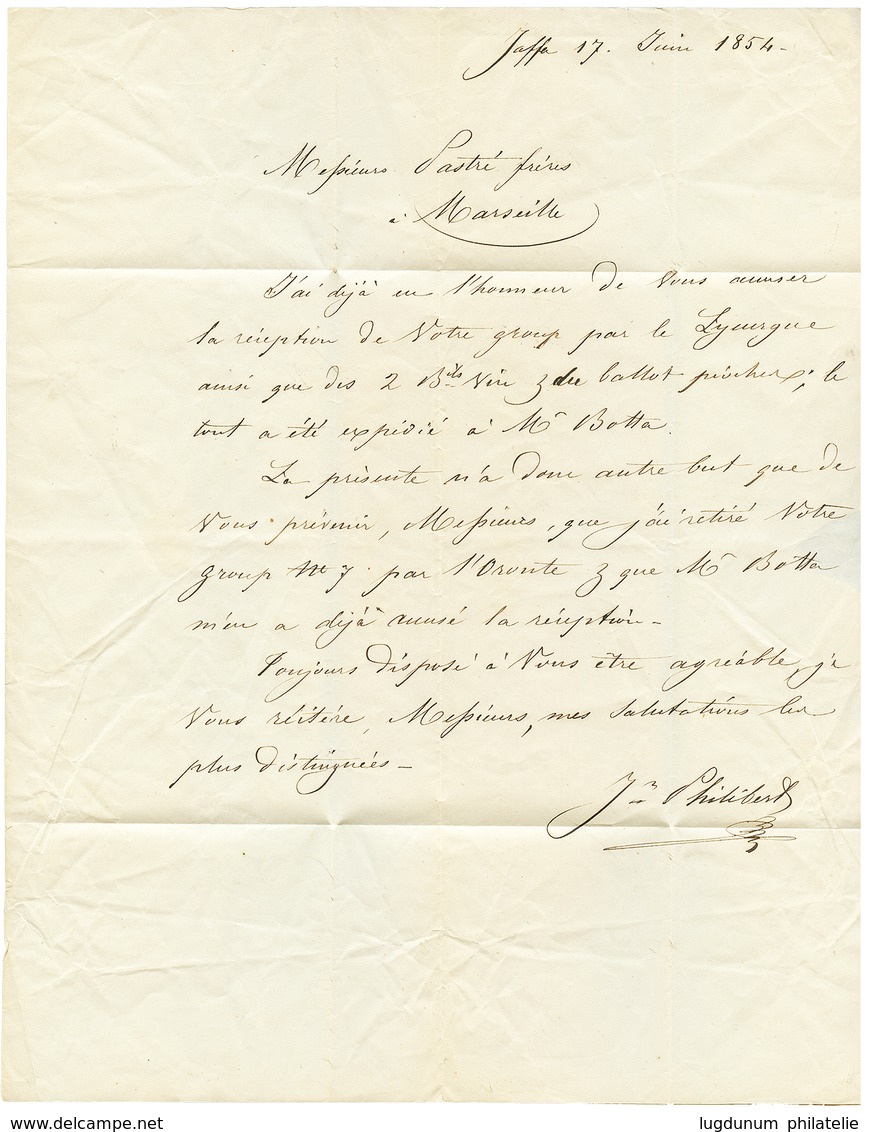 Jaffa 17. Juin 1854-
Messieurs Pastré frères
à Marseille
J'ai déjà eu l'honneur de Vous accuser
la réception de Votre group par le Lycurgue
ainsi que des 2 B.ils Vin & du ballot ; le
tout a été expédié à Mr Botta.
La présente n'a donc autre but que de
Vous prévenir, Messieurs, que j'ai retiré Votre
group No 7 par l'Oronte & que Mr Botta
m'en a déjà accusé la réception-
Toujours disposé à Vous être agréable, je
Vous réitère, Messieurs, mes salutations les
plus distinguées-
Philibert
delcampe.net
lugdunum philatelie